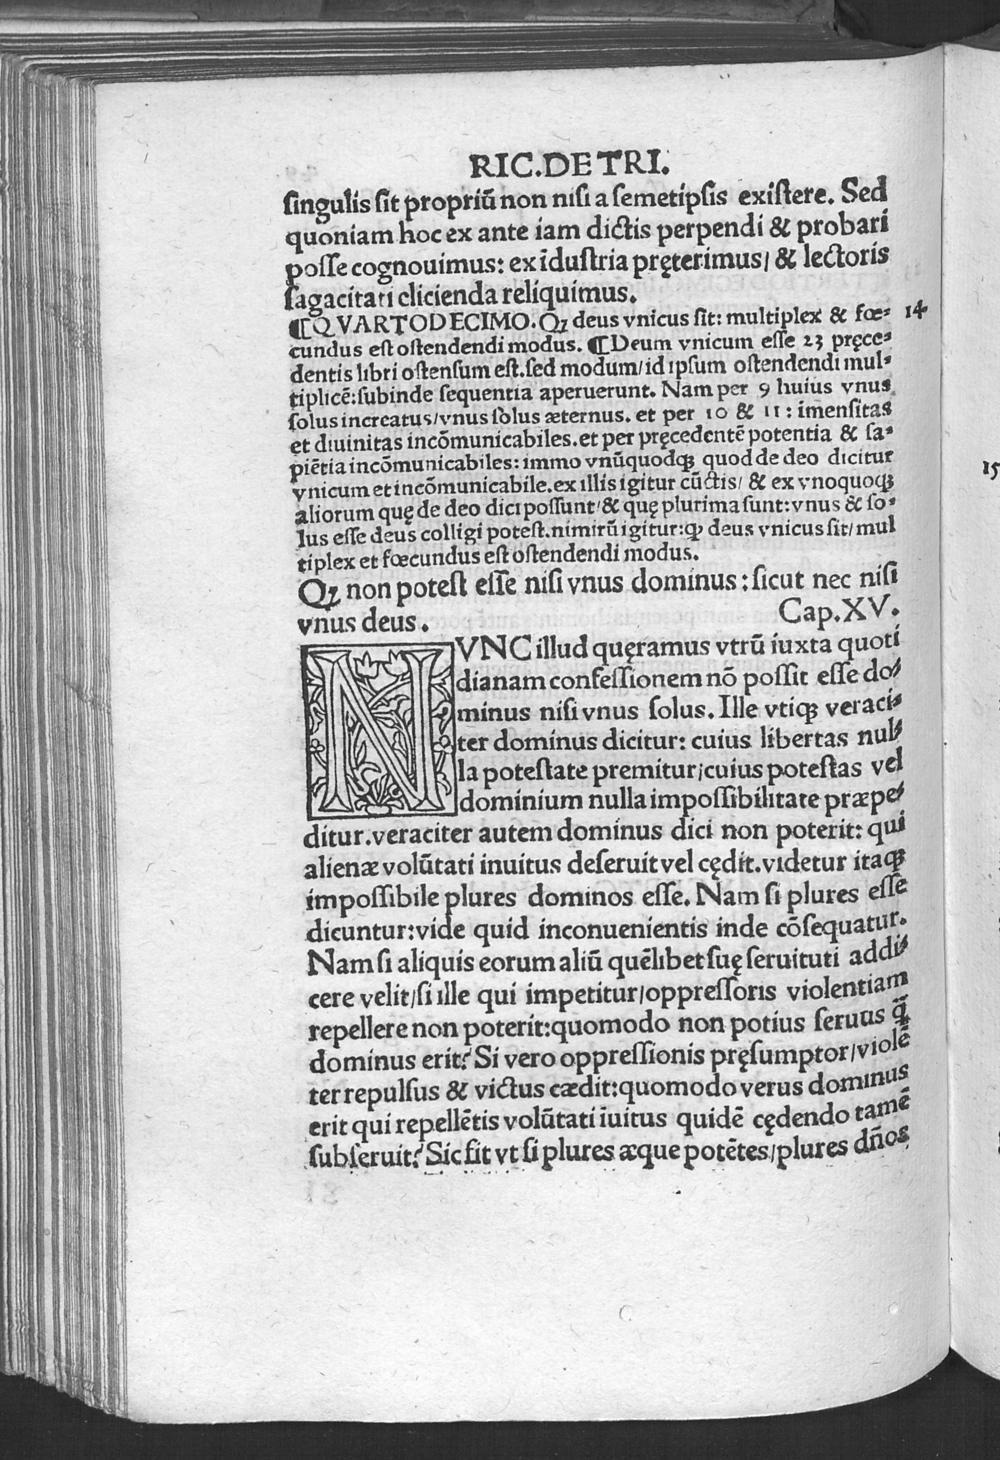 RIC.DE TRI.
ſingulis ſit propriū non niſi a ſemetipſis exiſtere. Sed
quoniam hoc ex ante iam dictis perpendi & probari
poſſe cognouimus: ex īduſtria pręterimus/ & lectoris
ſagacitati elicienda relíquimus.
¶QVARTODECIMO. Qꝫ deus vnicus ſit: multiplex & fœ⸗ 14
cundus eſt oſtendendi modus. ¶Deum vnicum eſſe 23 pręce⸗
dentis libri oſtenſum eſt. ſed modum/ id ipſum oſtendendi mul⸗
tiplicē: ſubinde ſequentia aperuerunt. Nam per 9 huius vnus
ſolus increatus/ vnus ſolus æternus. et per 10 & 11: imenſitas
et diuinitas incōmunicabiles. et per pręcedentē potentia & ſa⸗
piētia incōmunicabiles: immo vnūquodqꝫ quod de deo dicitur
vnicum et incōmunicabile. ex illis igitur cūctis/ & ex vnoquoqꝫ
aliorum quę de deo dici poſſunt/ & quę plurima ſunt: vnus & ſo⸗
lus eſſe deus colligi poteſt. nimirū igitur: ꝙ deus vnicus ſit/ mul
tiplex et fœcundus eſt oſtendendi modus.
Qꝫ non poteſt eſſe niſi vnus dominus: ſicut nec niſi
vnus deus. Cap.XV.
NVNC illud quęramus vtrū iuxta quoti
dianam confeſſionem nō poſſit eſſe do⸗
minus niſi vnus ſolus. Ille vtiqꝫ veraci⸗
ter dominus dicitur: cuius libertas nul⸗
la poteſtate premitur; cuius poteſtas vel
dominium nulla impoſſibilitate præpe⸗
ditur. veraciter autem dominus dici non poterit: qui
alienæ volūtati inuitus deſeruit vel cędit. videtur itaqꝫ
impoſſibile plures dominos eſſe. Nam ſi plures eſſe
dicuntur: vide quid inconuenientis inde cōſequatur.
Nam ſi aliquis eorum aliū quēlibet ſuę ſeruituti addi⸗
cere velit/ ſi ille qui impetitur/ oppreſſoris violentiam
repellere non poterit: quomodo non potius ſeruus q̄
dominus erit? Si vero oppreſſionis pręſumptor/ violē
ter repulſus & victus cædit: quomodo verus dominus
erit qui repellētis volūtati īuitus quidē cędendo tamē
ſubſeruit? Sic fit vt ſi plures æque potētes/ plures dn̄os
15